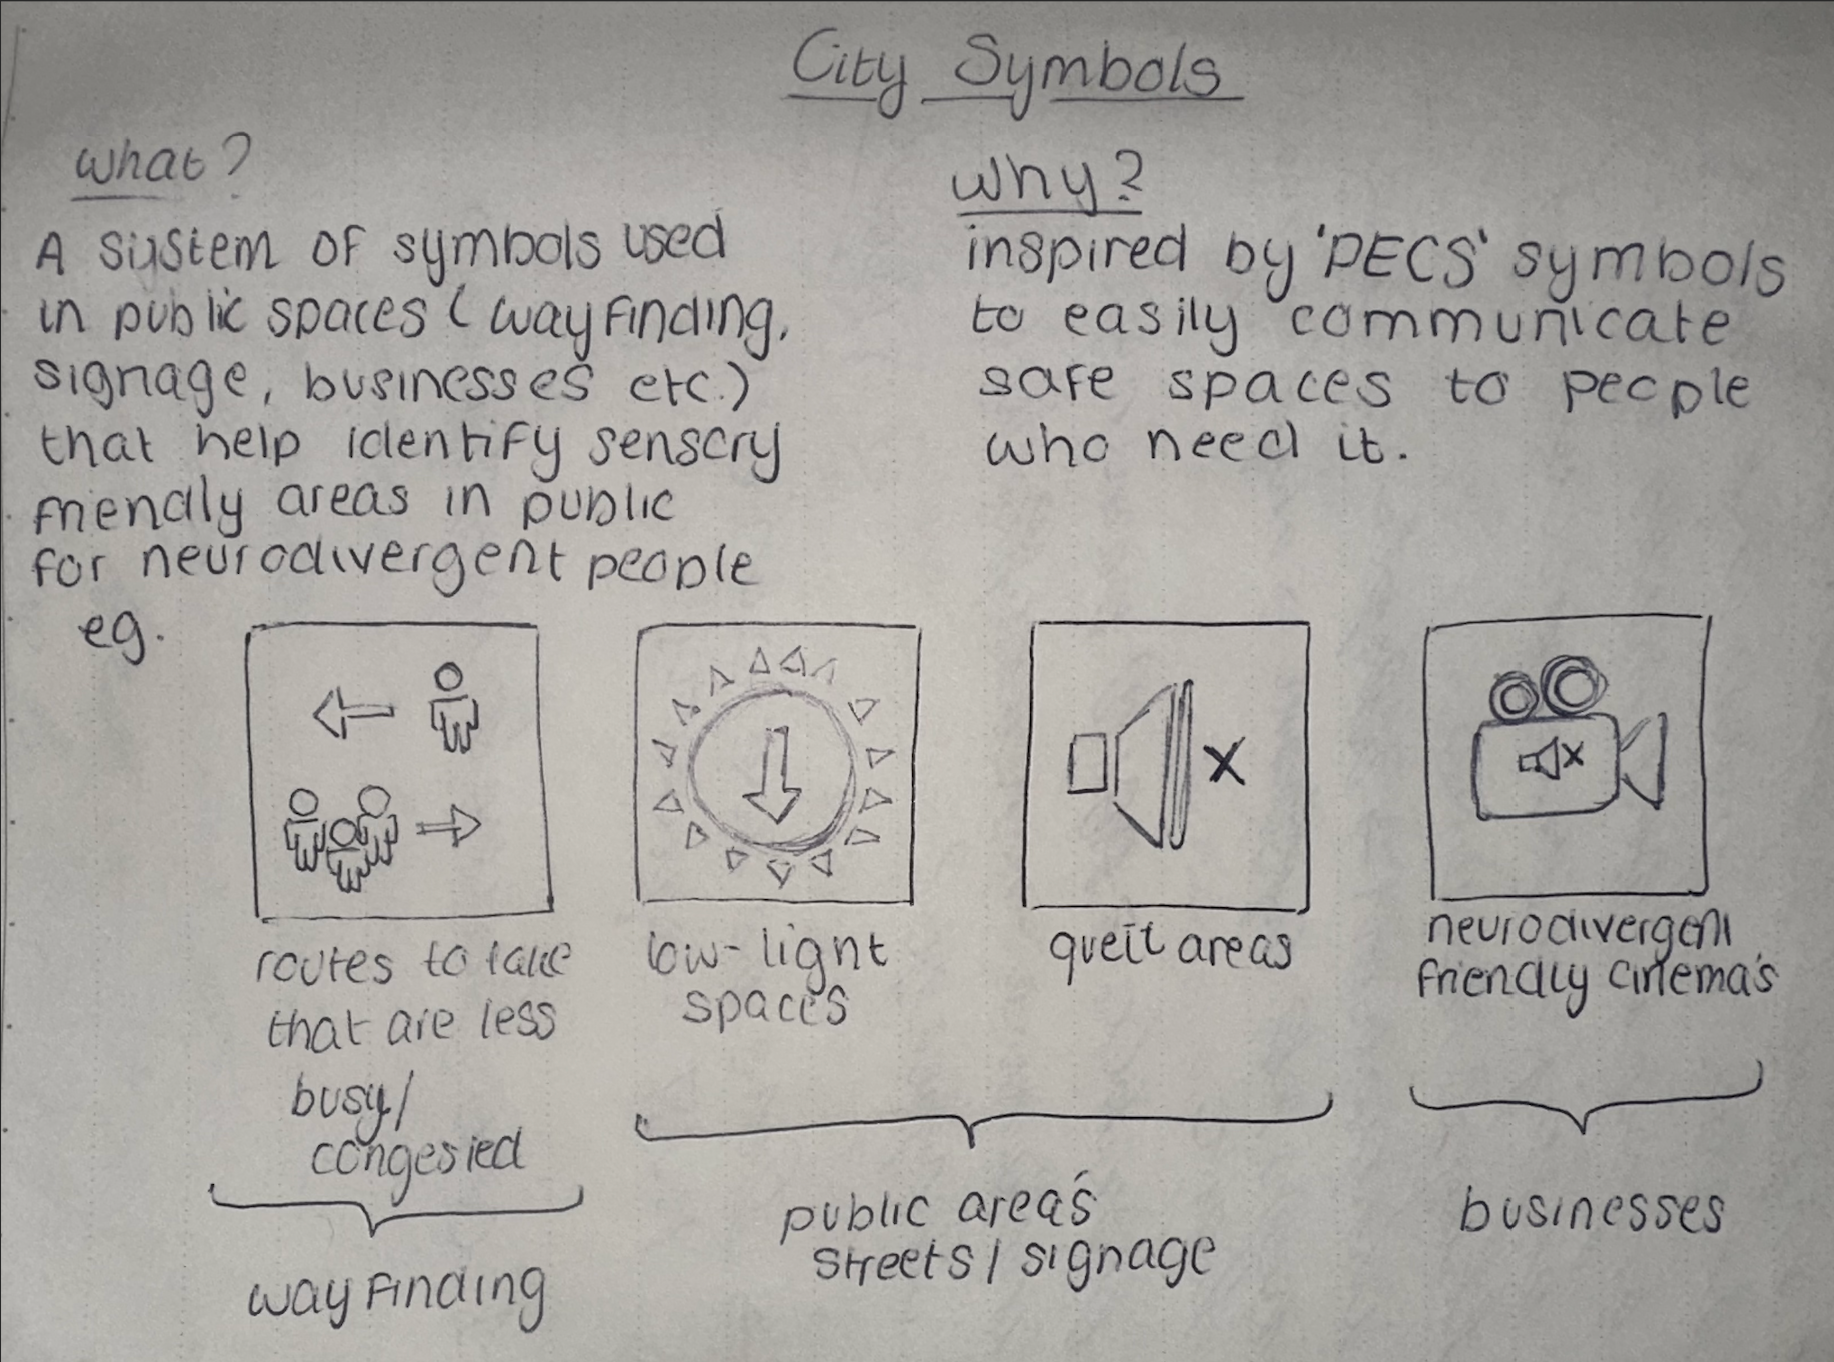 City Symbols
what?
A system of symbols used
in public spaces (wayfinding,
signage, businesses etc.)
that help identify sensory
friendly areas in public
for neurodivergent people
eg.
why?
inspired by 'PECS' symbols
to easily communicate
safe spaces to people
who need it.
routes to take
that are less
busy/
congested
low-light
spaces
queit areas
neurodivergent
friendly cinema's
wayfinding
public area's
streets/signage
businesses